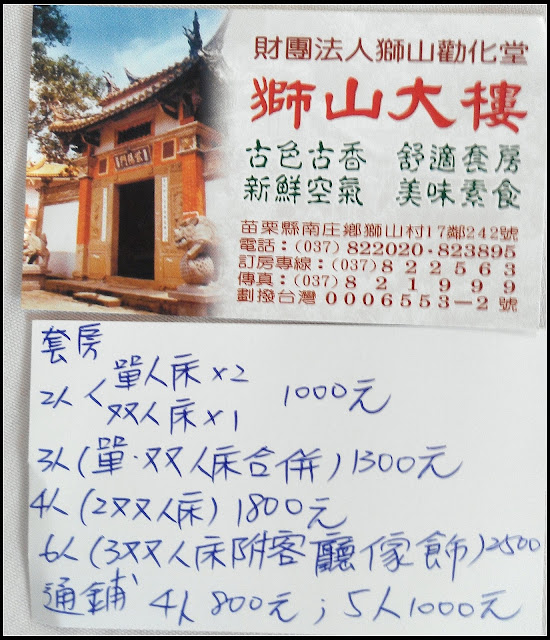 財團法人獅山勸化堂
獅山大樓
古色古香 舒適套房
新鮮空氣 美味素食
苗栗縣南庄鄉獅山村17鄰242號
電話：(037) 822020-823895
訂房專線：(037) 822563
傳真：(037) 821999
劃撥台灣 0006553-2 號
套房
2人< 單人床×2 1000元
双人床×1
3人(單·双人床合併) 1300元
4人(2双人床) 1800元
6人(3双人床附客廳傢飾) 2500
通鋪 4人800元；5人1000元